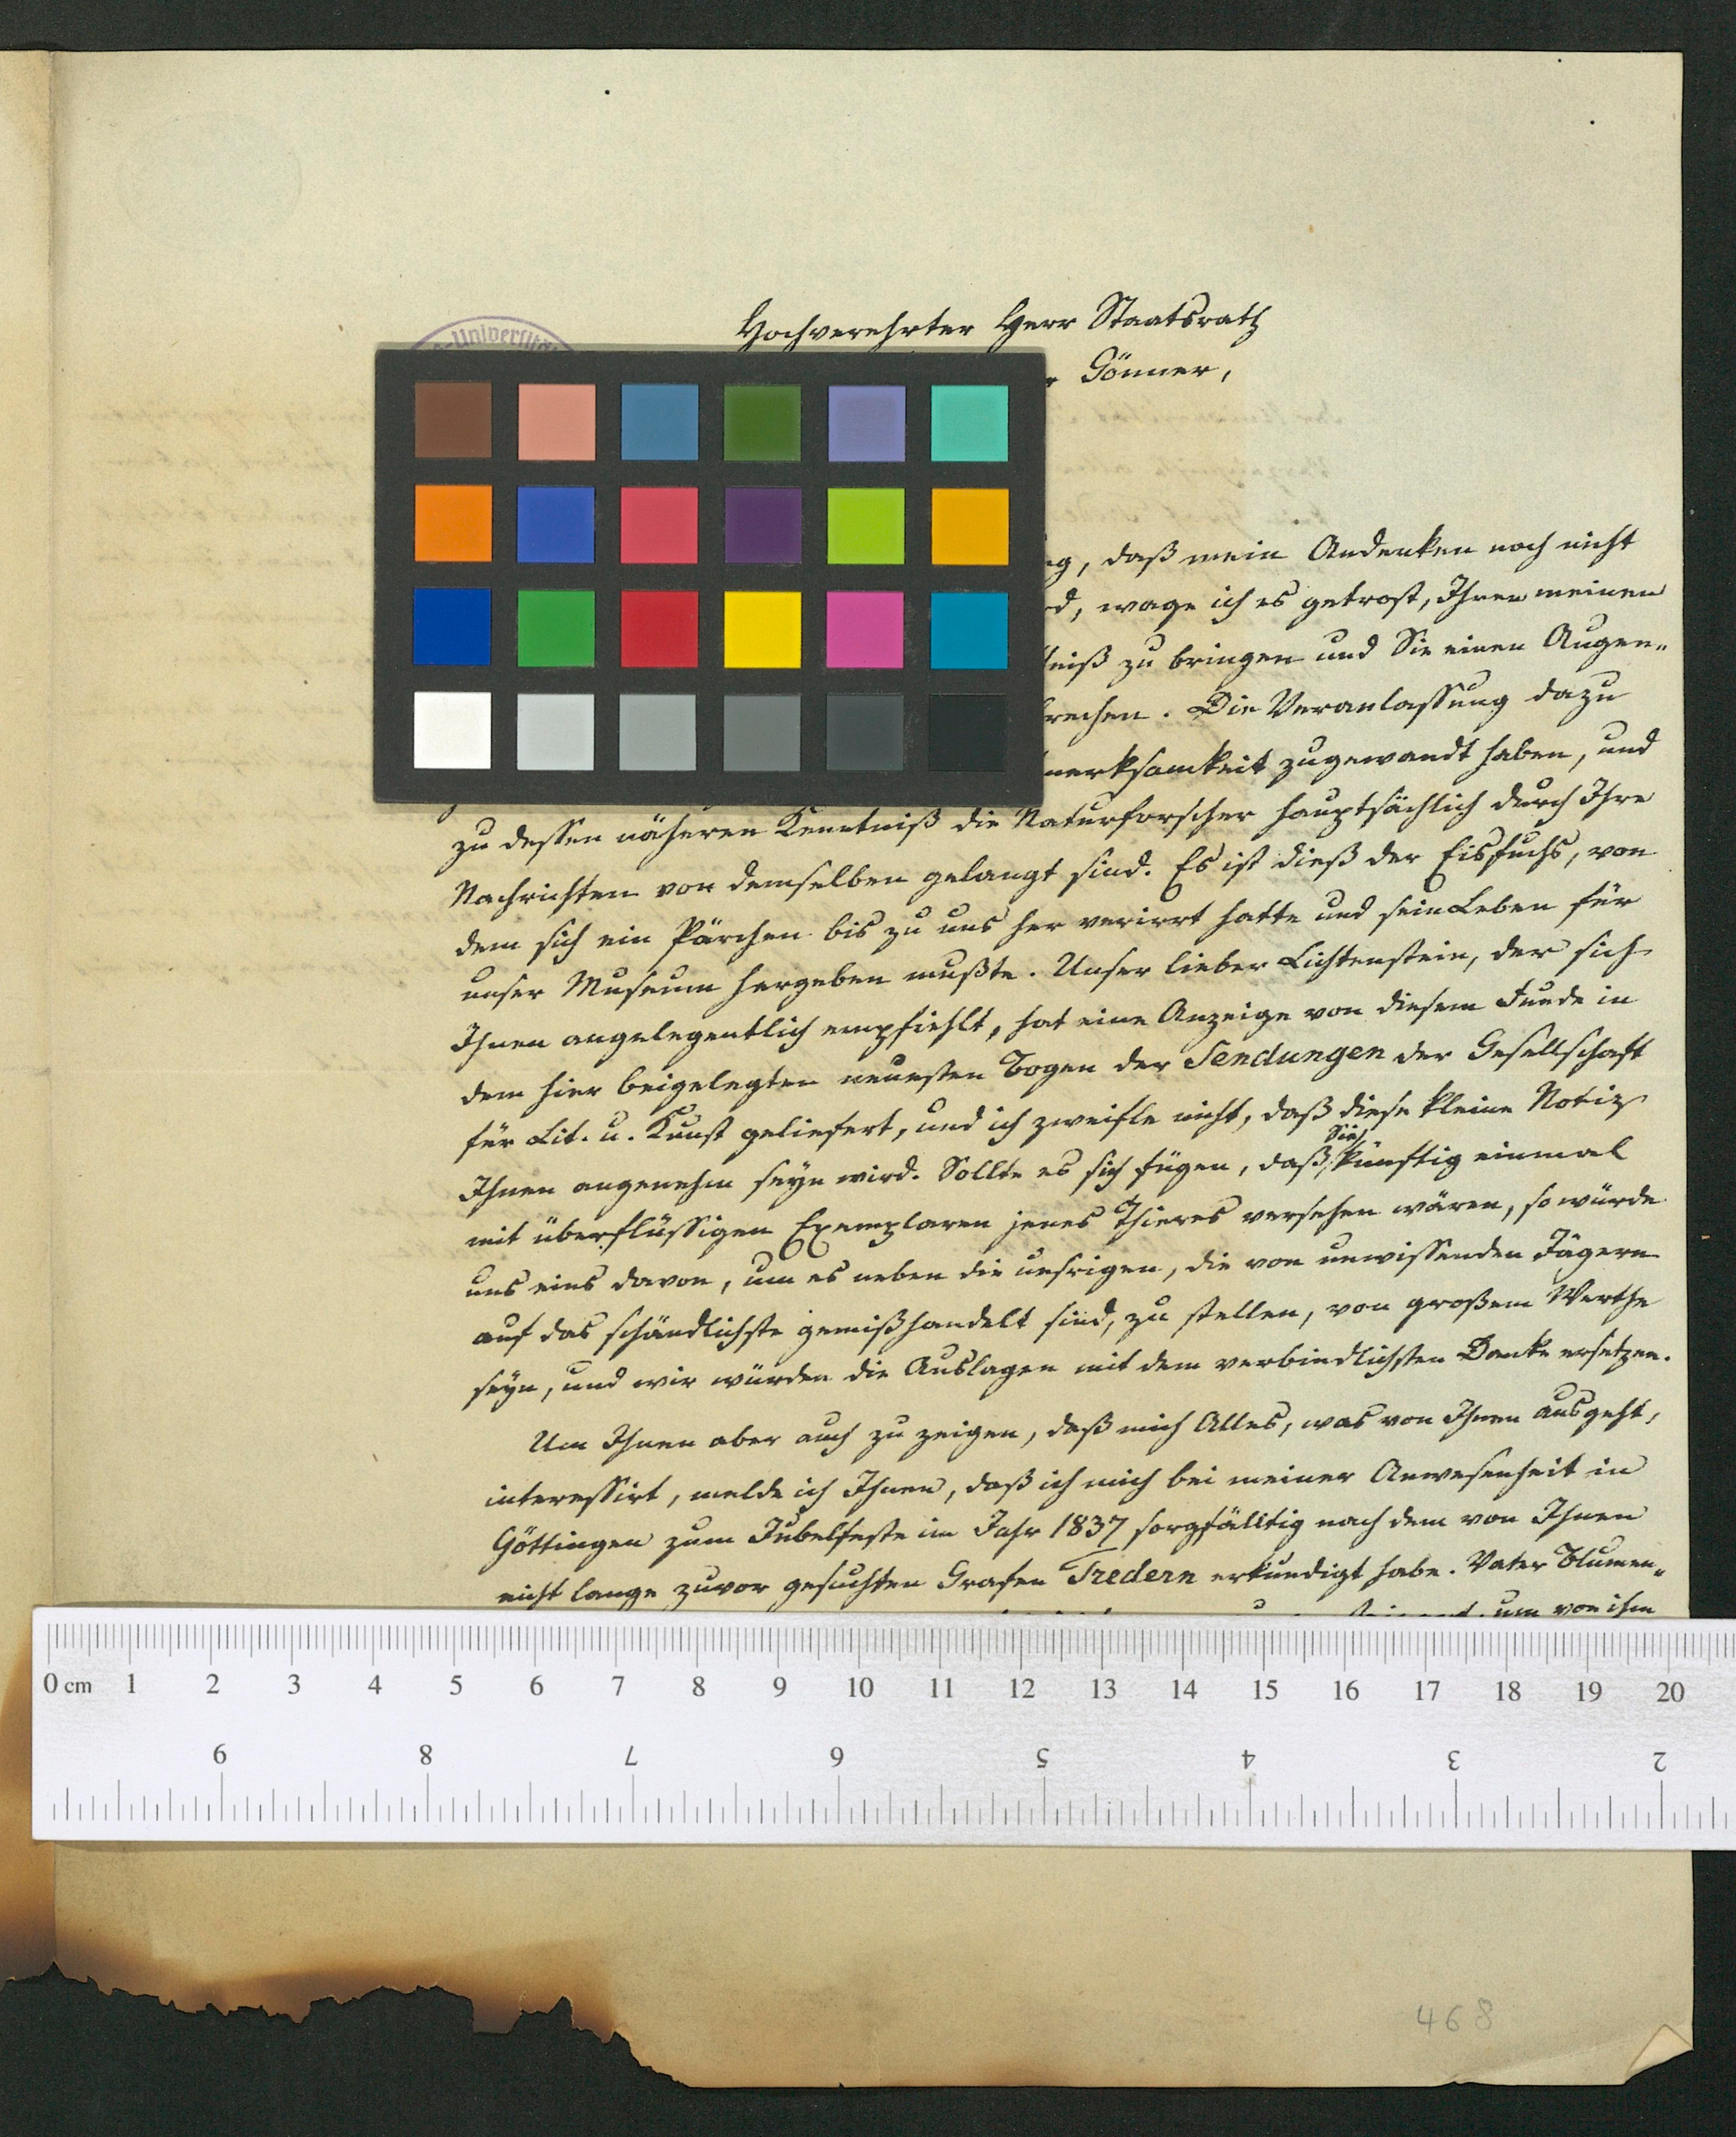 Hochverehrter Herr Staatsrath
-Universitä
Gönner,
daß mein Andenken noch nicht
wage ich es getrost, Ihnen meinen
zu bringen und Sie einen Augen-
Die Veranlassung dazu
zugewandt haben, und
zu dessen näheren Kenntniß die Naturforscher hauptsächlich durch Ihre
Nachrichten von demselben gelangt sind. Es ist dieß der Eisfuchs, von
dem sich ein Pärchen bis zu uns her verirrt hatte und sein Leben für
unser Museum hergeben mußte. Unser lieber Lichtenstein, der sich
Ihnen angelegentlich empfiehlt, hat eine Anzeige von diesem Funde in
dem hier beigelegten neuesten Bogen der Sendungen der Gesellschaft
für Lit. u. Kunst geliefert, und ich zweifle nicht, daß diese kleine Notiz
Ihnen angenehm seyn wird. Sollte es sich fügen, daß Sie künftig einmal
mit überflüssigen Exemplaren jenes Thieres versehen wären, so würde
uns eins davon, um es neben die unsrigen, die von unwissenden Jägern
auf das schändlichste gemißhandelt sind, zu stellen, von großem Werthe
seyn, und wir würden die Auslagen mit dem verbindlichsten Danke ersetzen.
Um Ihnen aber auch zu zeigen, daß mich Alles, was von Ihnen ausgeht,
interessirt, melde ich Ihnen, daß ich mich bei meiner Anwesenheit in
Göttingen zum Jubelfeste im Jahr 1837 sorgfälltig nach dem von Ihnen
nicht lange zuvor gesuchten Grafen Tredern erkundigt habe. Vater Blumen-
um von ihm
0 cm 1 2 3 4 5 6 7 8 9 10 11 12 13 14 15 16 17 18 19 20
9 8 7 6 5 4 3 2
468